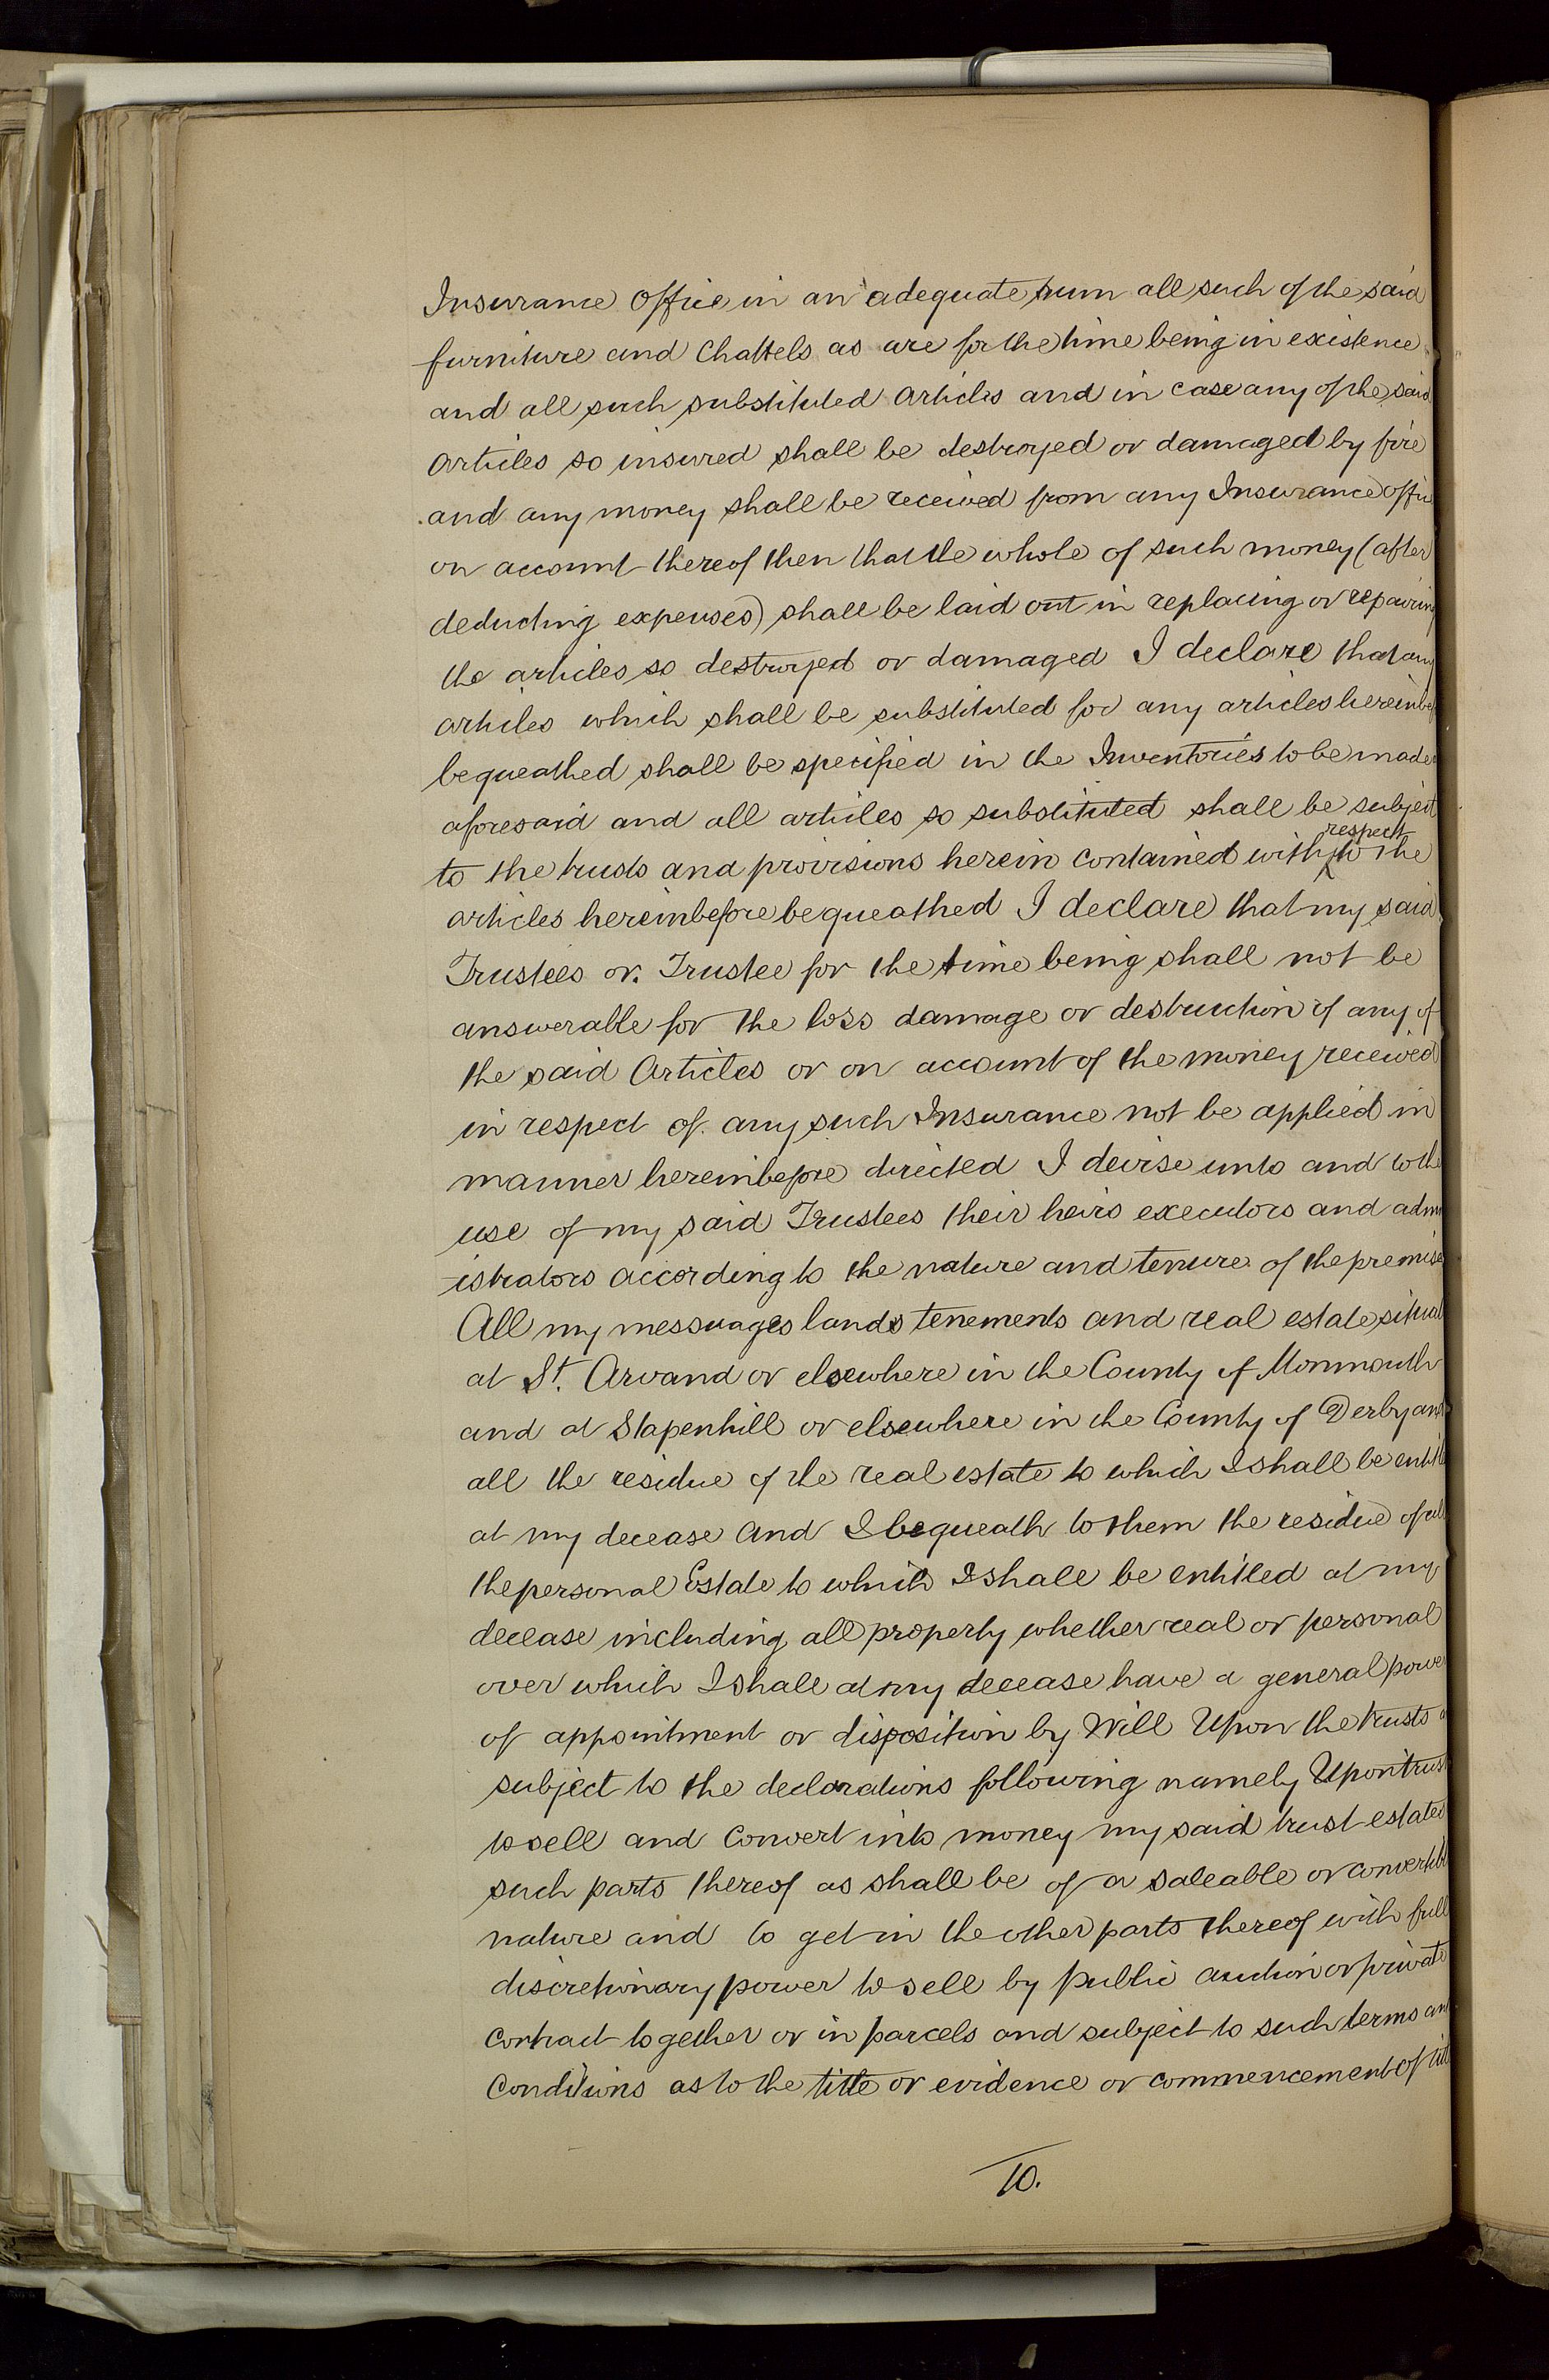 Insurance Office in an adequate sum all such of the said
furniture and Chattels as are for the time being in existence
and all such substituted articles and in case any of the said
articles so insured shall be destroyed or damaged by fire
and any money shall be received from any Insurance offic
on account thereof then that the whole of such money (after
deducting expenses) shall be laid out in replacing or repairing
the articles so destroyed or damaged I declare that any
articles which shall be substituted for any articles hereinbef
bequeathed shall be specified in the Inventories to be made
aforesaid and all articles so substituted shall be subject
respect
to the trusts and provisions herein contained with to the
articles hereinbefore bequeathed I declare that my said
Trustees or Trustee for the time being shall not be
answerable for the loss damage or destruction of any of
the said Articles or on account of the money received
in respect of any such Insurance not be applied in
manner hereinbefore directed I devise unto and to the
use of my said Trustees their heirs executors and admin
istrators according to the nature and tenure of the premise
All my messuages lands tenements and real estate situat
at St. Arvand or elsewhere in the County of Monmouth
and at Stapenhill or elsewhere in the County of Derby and
all the residue of the real estate to which I shall be entitle
at my decease and I bequeath to them the residue of all
the personal Estate to which I shall be entitled at my
decease including all property whether real or personal
over which I shall at my decease have a general power
of appointment or disposition by Will Upon the trusts a
subject to the declarations following namely Upon trust
to sell and Convert into money my said trust estates
such parts thereof as shall be of a saleable or convertibl
nature and to get in the other parts thereof with full
discretionary power to sell by public auction or private
contract together or in parcels and subject to such terms an
Conditions as to the title or evidence or commencement of tit
10.